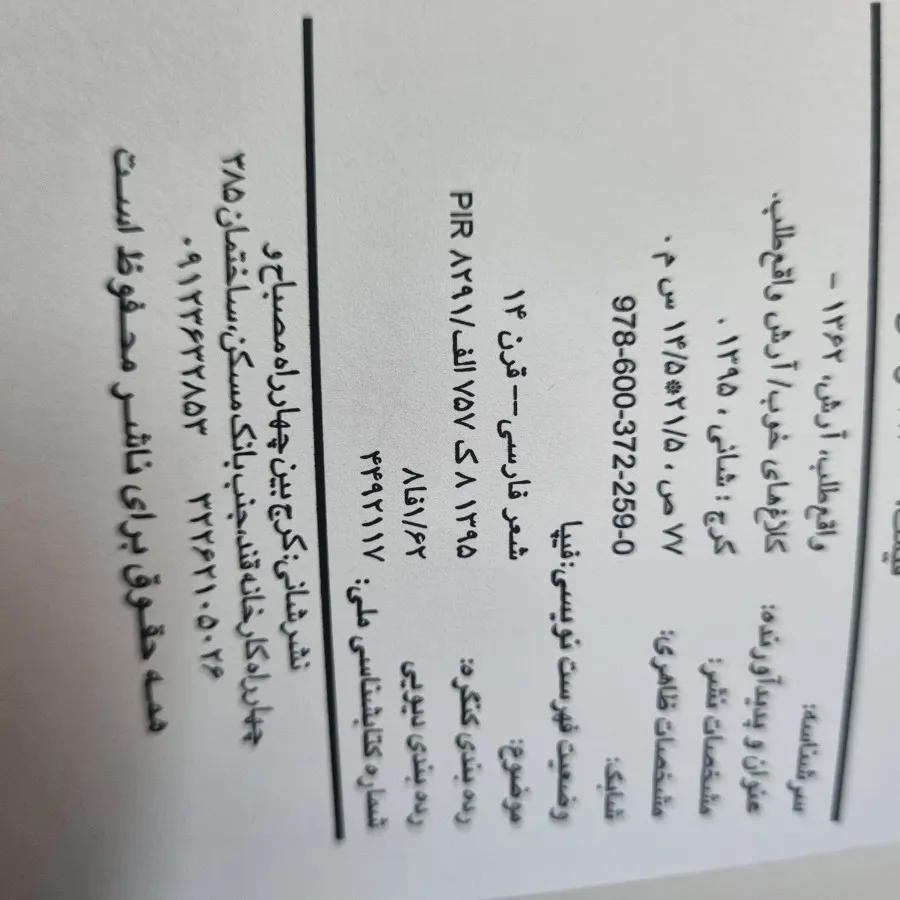 سرشناسه: واقع‌طلب، آرش، ۱۳۶۲ -
عنوان و پدیدآورنده: کلاغ‌های خوب/ آرش واقع‌طلب.
مشخصات نشر: کرج : شانی ، ۱۳۹۵ .
مشخصات ظاهری: ۷۷ ص ، ۲۱/۵*۱۴/۵ س م .
شابک: 978-600-372-259-0
وضعیت فهرست نویسی: فیپا
موضوع: شعر فارسی -- قرن ۱۴
رده بندی کنگره: ۱۳۹۵ ۸ک ۷۵۷ الف/۸۲۹۱ PIR
رده بندی دیویی ۱/۶۲فا۸
شماره کتابشناسی ملی: ۴۴۹۲۱۱۷
نشر شانی: کرج بین چهارراه مصباح و
چهارراه کارخانه قند، جنب بانک مسکن، ساختمان ۳۸۵
۳۲۲۶۲۱۰۵۰۲۶ ۰۹۱۲۳۶۳۲۸۵۳
همه حقوق برای ناشر محفوظ است